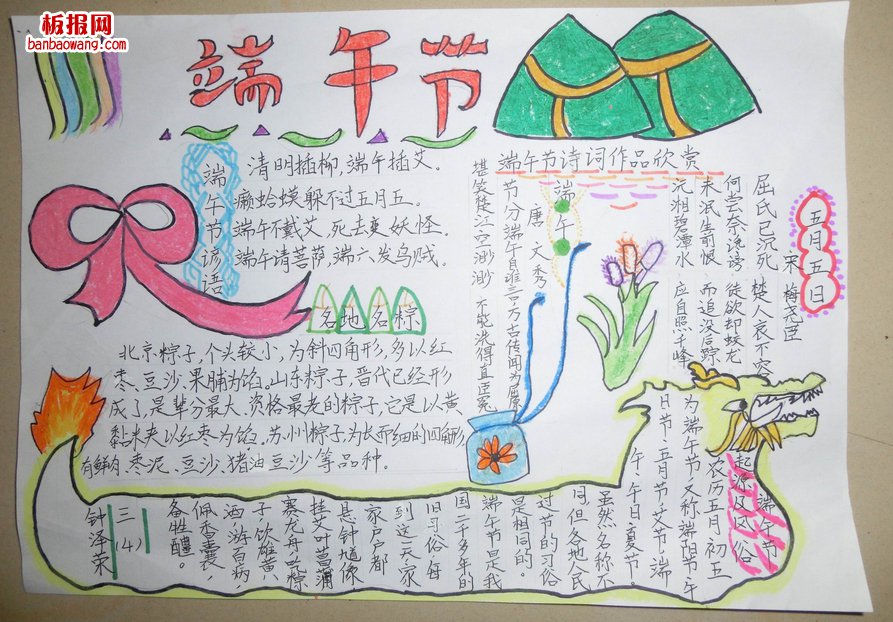 板报网
banbaowang.com
端午节
端午节谚语
清明插柳,端午插艾。
癞蛤蟆躲不过五月五。
端午不戴艾,死去变妖怪。
端午请菩萨,端六发乌贼。
名地名粽
北京粽子,个头较小,为斜四角形,多以红
枣、豆沙、果脯为馅。山东粽子,晋代已经形
成了,是辈分最大、资格最老的粽子,它是以黄
黏米夹以红枣为馅,苏州粽子,为长而细的四角形
有鲜肉、枣泥、豆沙、猪油豆沙等品种。
端午节诗词作品欣赏
五月五日
宋 梅尧臣
屈氏已沉死 楚人哀不容
何尝奈谗谤 徒欲却蛟龙
未泯生前恨 而追没后踪
沅湘碧潭水 应自照千峰
端午
唐 文秀
节分端午自谁言 万古传闻为屈原
堪笑楚江空渺渺 不能洗得直臣冤
端午节
起源及风俗
农历五月初五
为端午节,又称端阳节、午
日节、五月节、艾节、端
午、午日、夏节。
虽然名称不
同,但各地人民
过节的习俗
是相同的。
端午节是我
国二千多年的
旧习俗,每
到这一天,家
家户户都
悬钟馗像
挂艾叶菖蒲
赛龙舟,吃粽
子,饮雄黄
酒,游百病
佩香囊,
备牲醴。
三(4)
钟泽荣